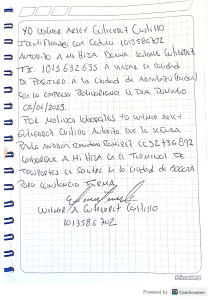 YO WILMER ARLEY GUTIERREZ CASTILLO
IDENTIFICADO CON CEDULA 1013586702
AUTORIZO A MI HIJA GUTIERREZ
TI: 1013632635 A VIAJAR EN CALIDAD
DE A LA CIUDAD DE ARMENIA
CON LA EMPRESA BOLIVARIANO EL DIA DOMINGO
02/04/2023.
POR MOTIVOS LABORALES YO WILMER ARLEY
GUTIERREZ CASTILLO AUTORIZO QUE LA SEÑORA
PAULA ANDREA RAMIREZ CC 52736692
EMBARQUE A MI HIJA EN EL TERMINAL DE
TRANSPORTES EN LA CIUDAD DE BOGOTA
PARA CONSTANCIA FIRMA
WILMER A GUTIERREZ CASTILLO
1013586702
Powered by CamScanner